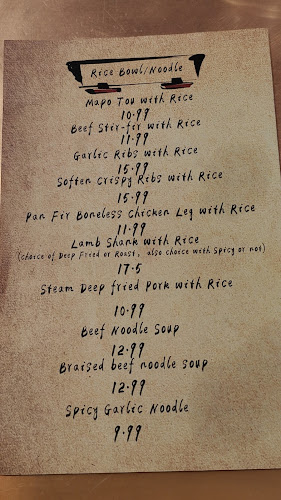 Rice Bowl/Noodle
Mapo Tou with Rice
10.99
Beef Stir-fir with Rice
11.99
Garlic Ribs with Rice
15.99
Soften Crispy Ribs with Rice
15.99
Pan Fir Boneless Chicken Leg with Rice
11.99
Lamb Shank with Rice
(choice of Deep Fried or Roast, also choice with Spicy or not)
17.5
Steam Deep fried Pork with Rice
10.99
Beef Noodle Soup
12.99
Braised beef noodle soup
12.99
Spicy Garlic Noodle
9.99